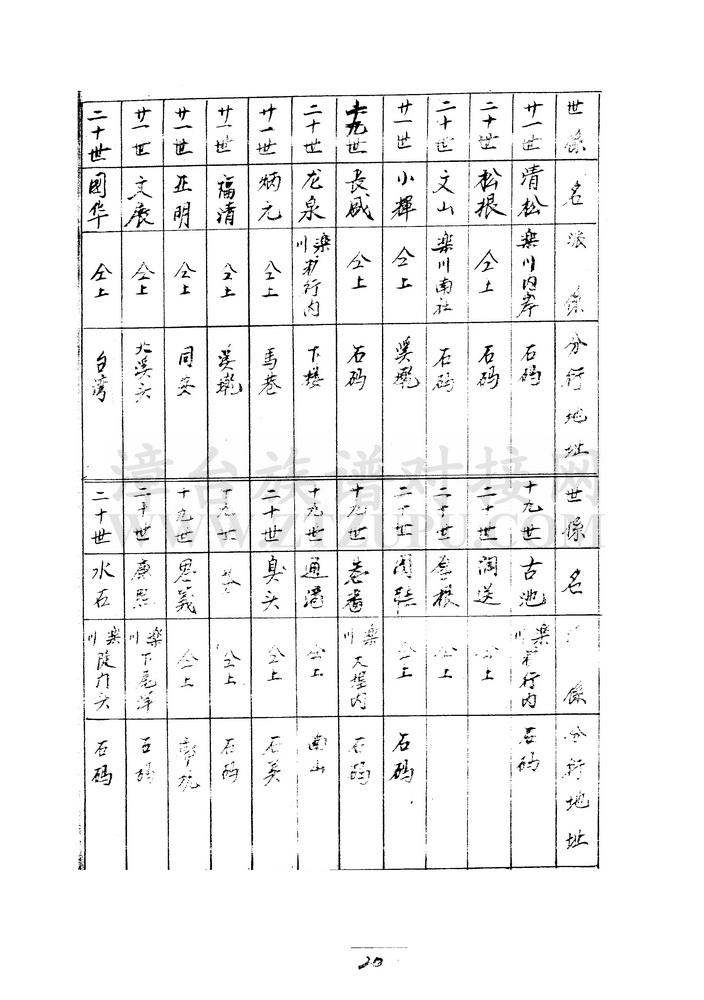 世係 名 派係 分行地址
廿一世 清松 楽川内岸 石码
二十世 松根 仝上 石码
二十世 文山 楽川南社 石码
廿一世 小輝 仝上
十九世 長威 仝上 石码
二十世 龙泉 楽川 行内 下楼
廿一世 炳元 仝上 馬巷
廿一世 福清 仝上
廿一世 亚明 仝上 同安
廿一世 文展 仝上 北溪头
二十世 國华 仝上 台湾
世係 名 係 分行地址
十九世 古池 楽川 行内 石码
二十世 润送 仝上
二十世 根 仝上
二十世 仝上 石码
十九世 楽川 大埕内 石码
十九世 通 仝上 南山
二十世 臭头 仝上 石美
十九世 仝上 石码
十九世 思義 仝上 郭坑
二十世 康熙 楽川下尾洋 石码
二十世 水石 楽川陡门头 石码
漳台族谱对接网
WWW.ZTZUPU.COM
20